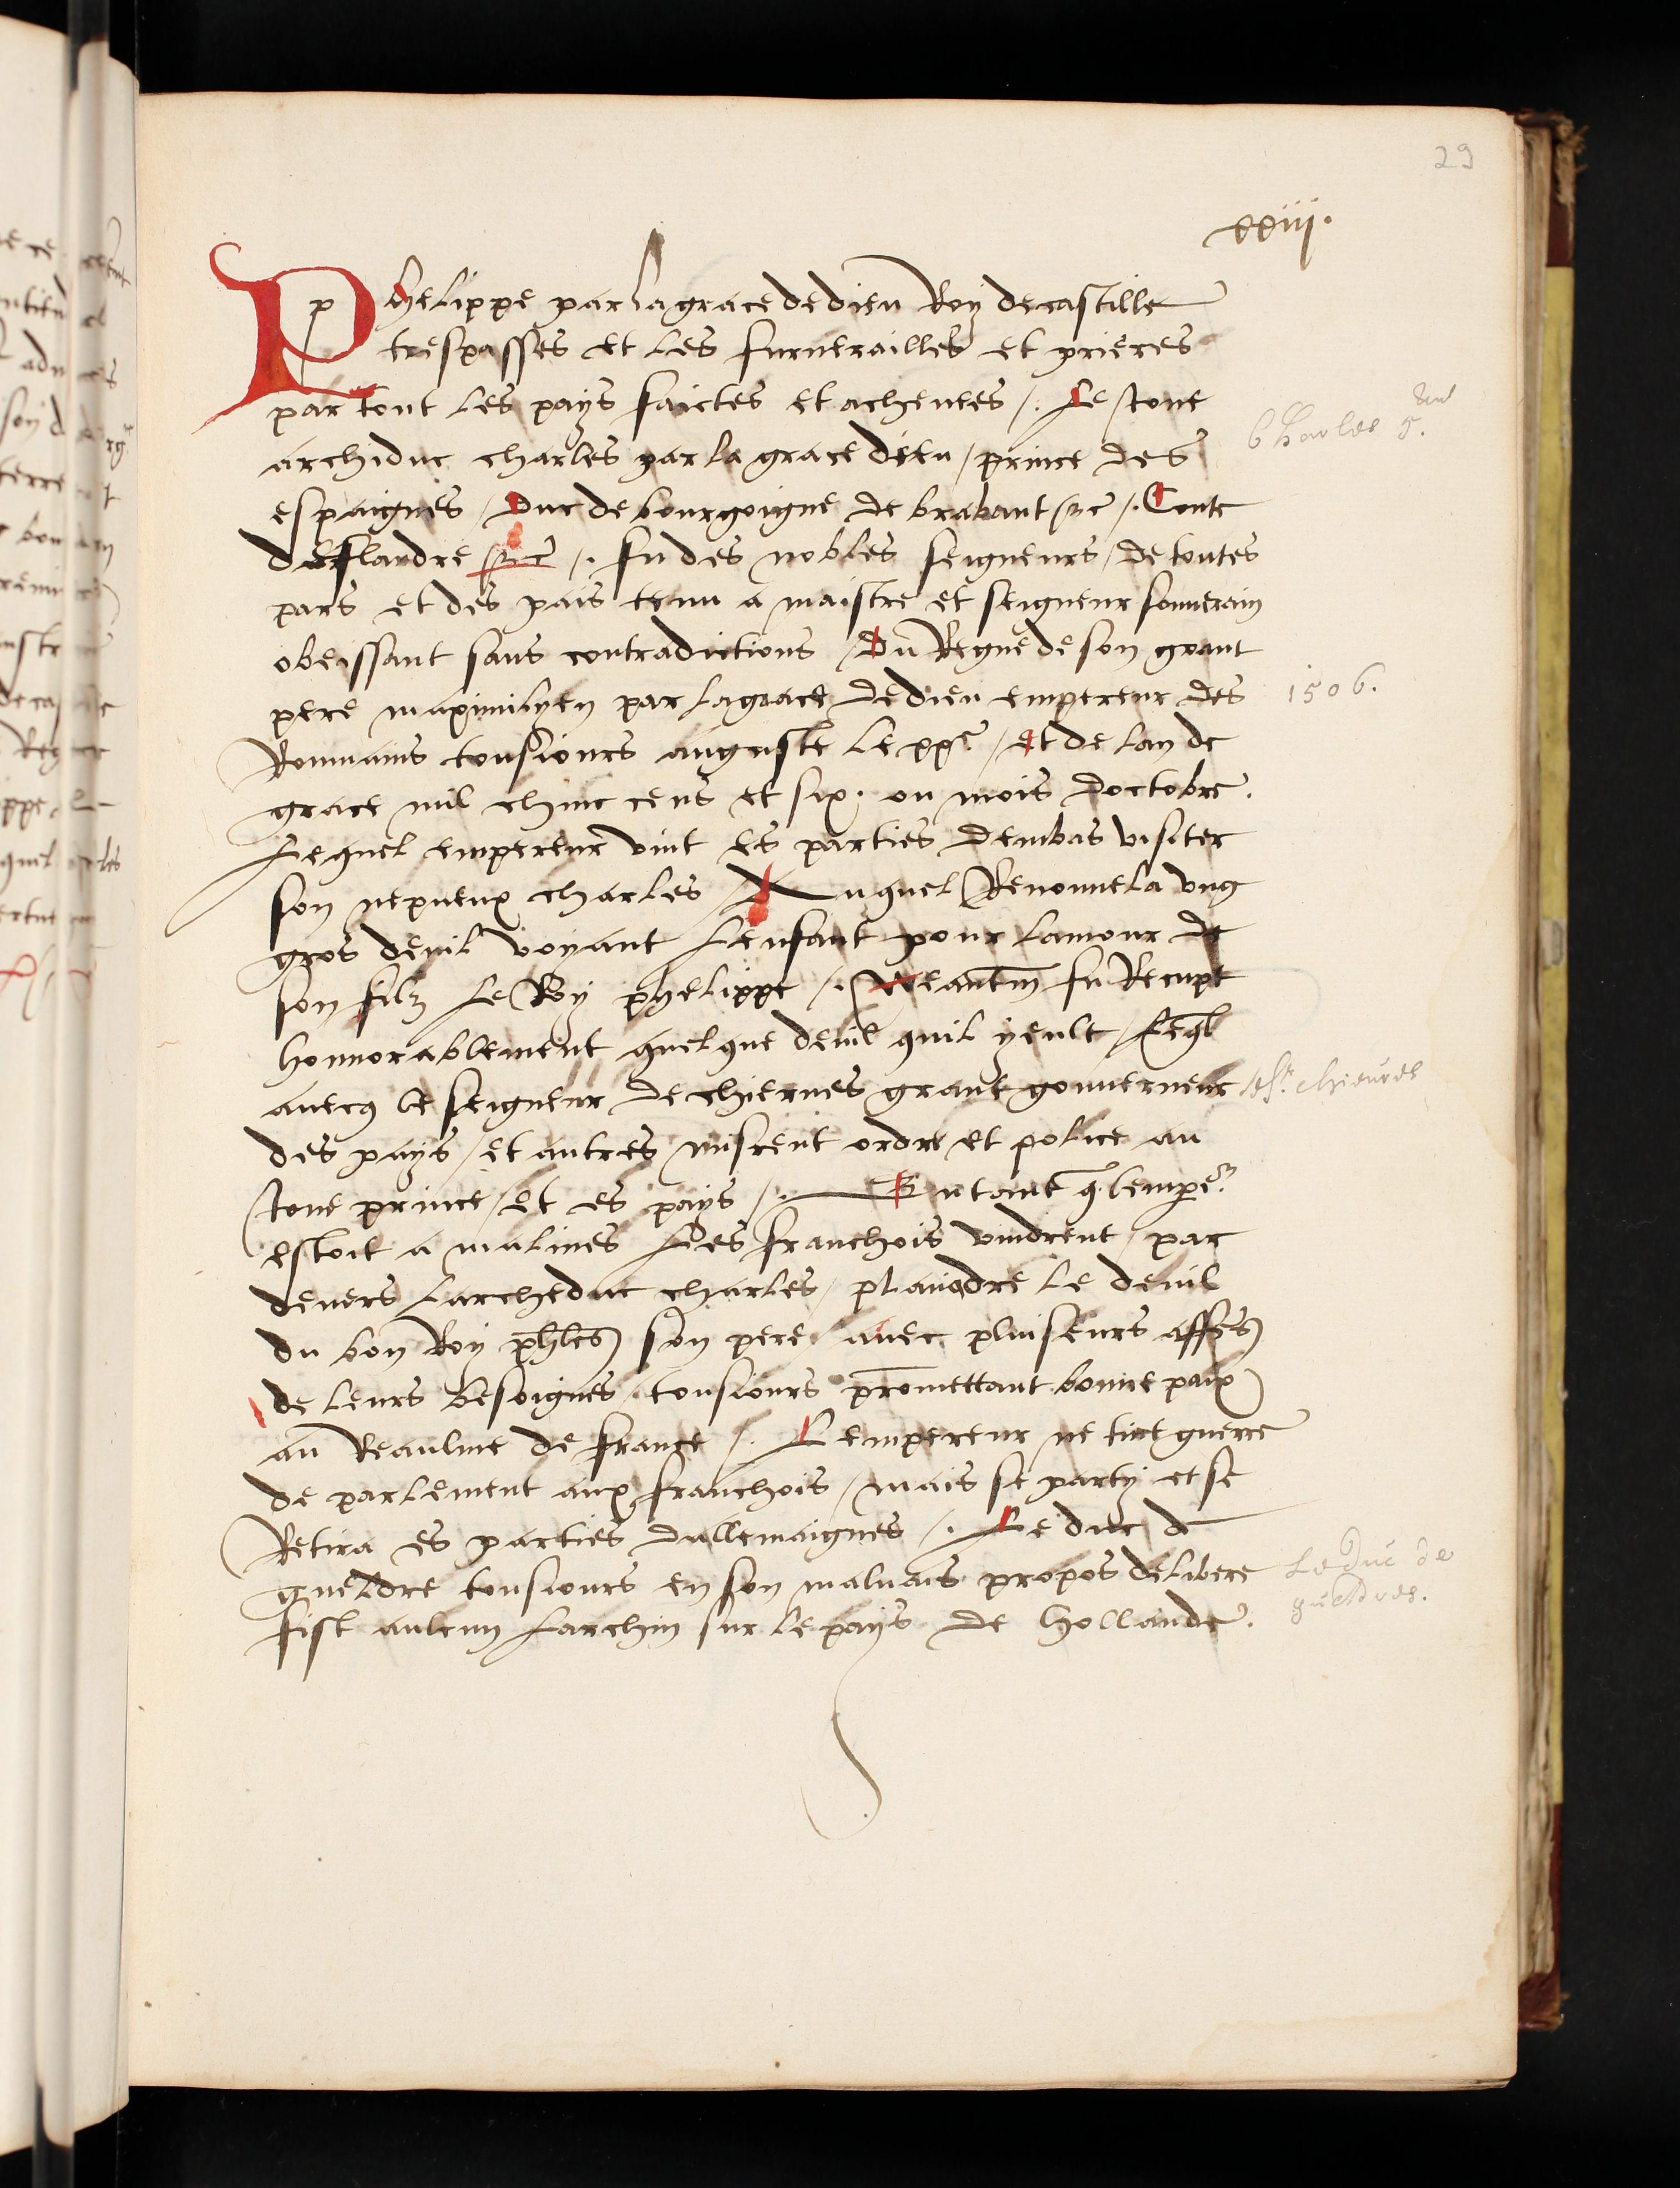 29
xxiij.
Phelippe par la grace de dieu Roy de castille
trespasses et les furnerailles et prieres
par tout les pays faictes et acheuees /. Le Jone
Charles 5.
archiduc charles par la grace dieu / prince des
espaignes / Duc de bourgoigne de brabant etc /. Conte
de flandre etc /. fu des nobles seigneurs / de toutes
pars et des pais tenu a maistre et seigneur souuerain
obeissant sans contradictions / Du Regne de son grant
pere maximilyen par la grace de dieu empereur des
1506.
Rommains tousiours auguste le xxe / et de lan de
grace mil chinc cens et six. ou mois doctobre.
Lequel empereur vint es parties dembas visiter
son nepueux charles / Auquel Renouuela vng
gros deuil voyant lenfant pour lamour de
son filz le Roy phelippe /. Neantm fu Recupt
honnorablement quelque deuil quil yeult / Leql
auecq le seigneur de chierues grant gouuerneur
sr. chieures
des pays / et autres misrent ordre et police au
Jone prince / et es pays /. Entant q lempe.r
estoit a malines Les franchois vindrent / par
deuers larcheduc charles / plaindre le deuil
du bon Roy phles son pere / auec pluiseurs affres
de leurs besoignes / tousiours promettant bonne paix
au Reaulme de france /. Lempereur ne tint guerre
de parlement aux franchois / mais se party et se
Retira es parties dallemaignes /. Le duc de
gueldre tousiours en son maluais propos delibere
Le Duc de
gueldres.
fist aulcun larchin sur le pays de hollande.